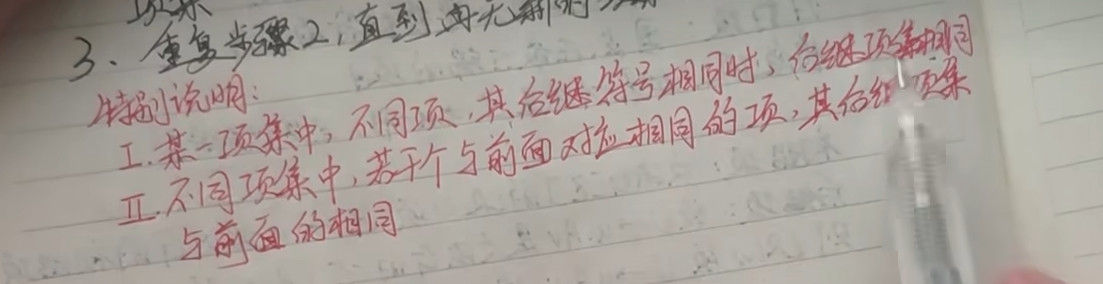 项集
3、重复步骤2,直到再无新的
特别说明:
I.某一项集中,不同项,其后继符号相同时,后继项集相同
II.不同项集中,若干个与前面对应相同的项,其后继项集
与前面的相同